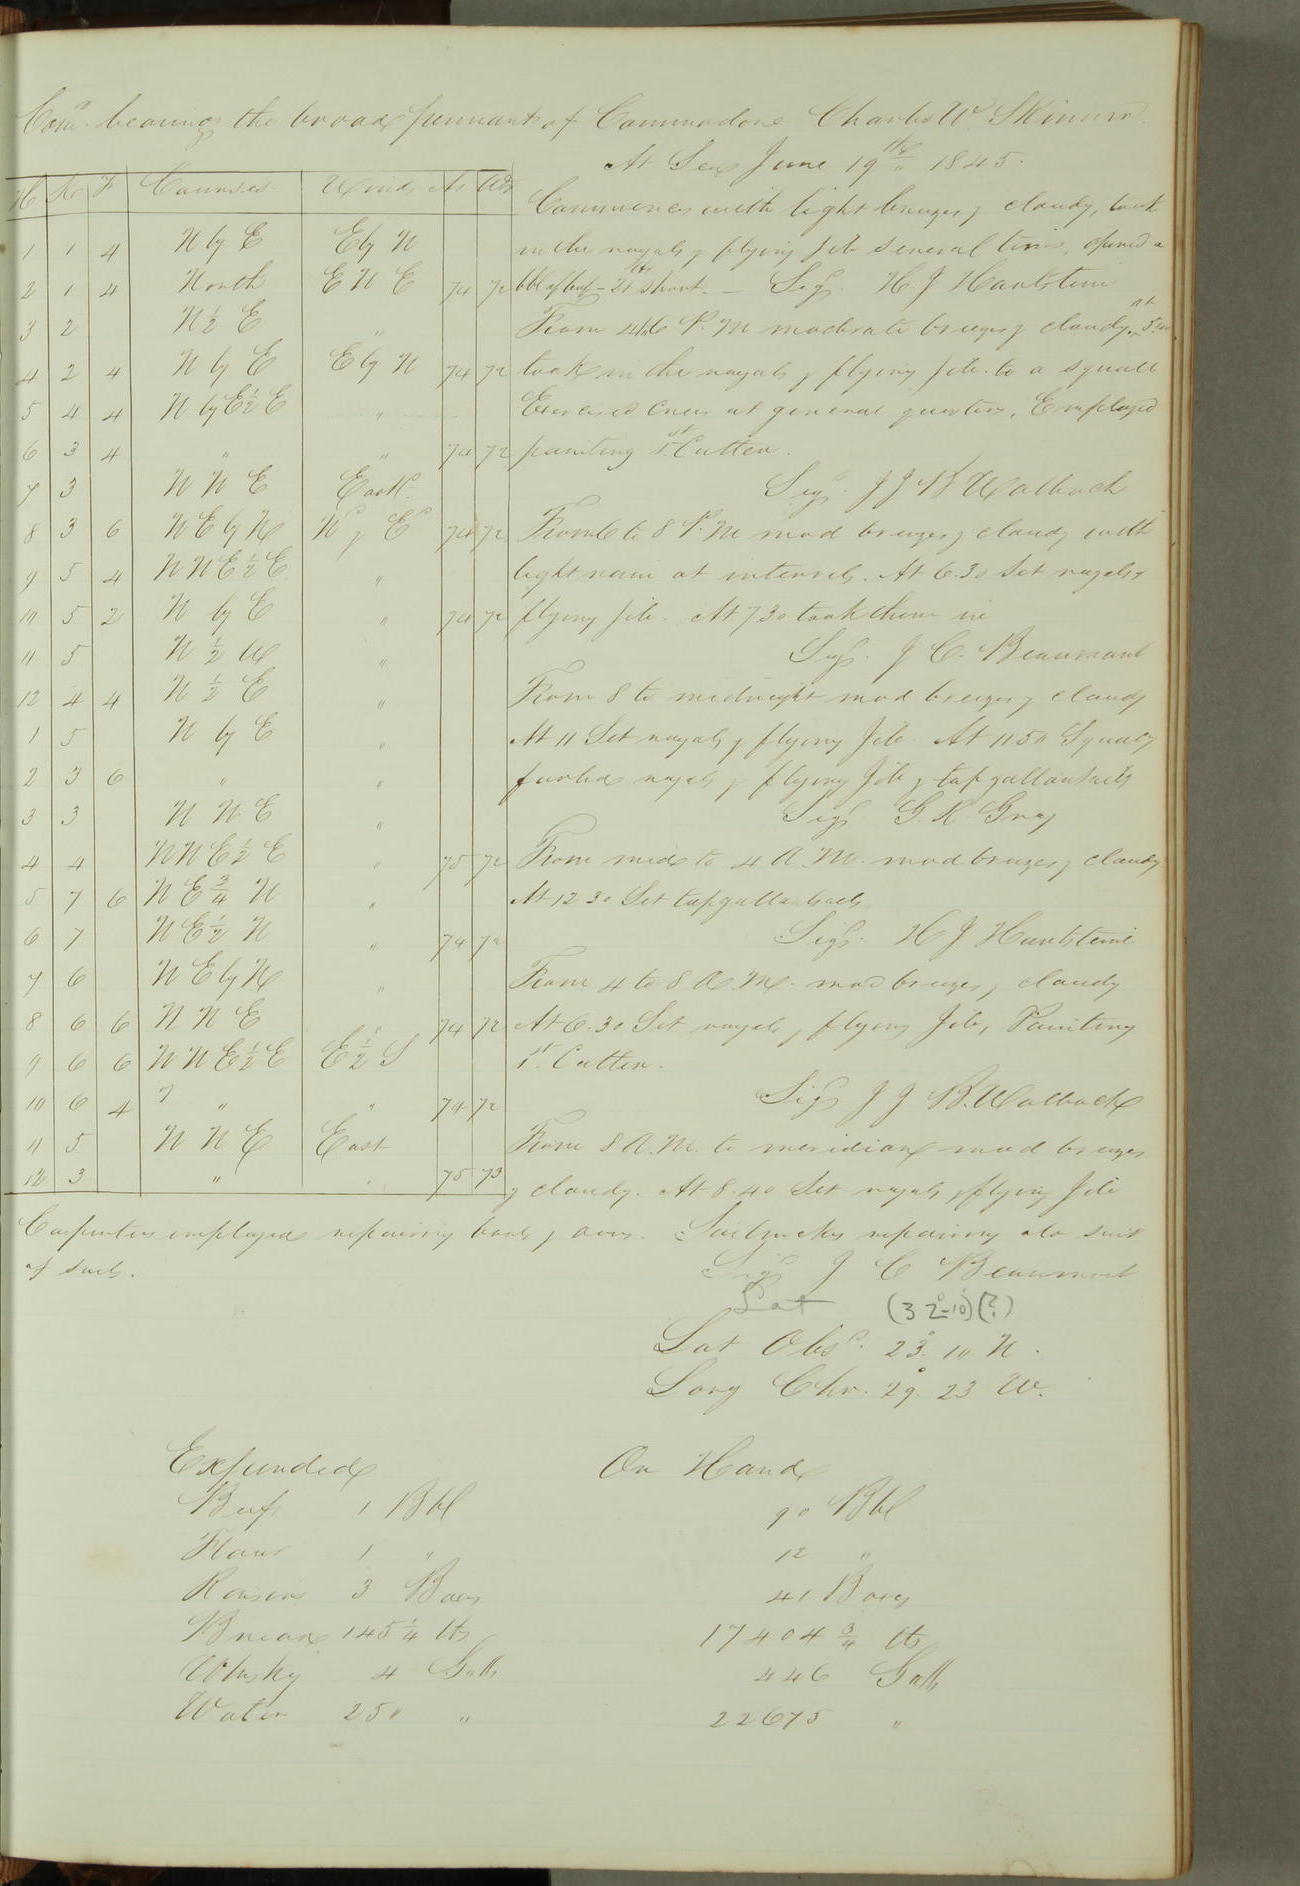 Com<sup>r</sup>. bearing the broad pennant of Commodore Charles W. Skinner.
At Sea June 19<sup>th</sup> 1845.
H K F Courses Winds Ar Wr
Commences with light breezes & cloudy, took
1 1 4 N by E E by N in the royals & flying Jib several times, opened a
2 1 4 North E N E 74 72 bbl of beef - 21 lbs short. - Sigd. H. J Hartstene
3 2 N ½ E " From 4 to 6 P. M moderate breezes & cloudy, at 5.40
4 2 4 N by E E by N 74 72 took in the royals & flying jib to a squall
5 4 4 N by E ½ E " Exercised crew at general quarters, Employed
6 3 4 " " 74 72 painting 1st Cutter.
7 3 N N E East Sigd. J J B Walbach
8 3 6 N E by N Nd & Ed 74 72 From 6 to 8 P. M mod breezes & cloudy with
9 5 4 N N E ½ E " light rain at intervals. At 6.30 Set royals &
10 5 2 N by E " 74 72 flying jib. At 7 30 took them in
11 5 N ½ W " Sigd. J C. Beaumont
12 4 4 N ½ E " From 8 to midnight mod breezes & cloudy
1 5 N by E " At 11 Set royals & flying Jib. At 11 50 Squally
2 3 6 " " furled royals & flying Jib & top gallantsails
3 3 N N E " Sigd G. K. Gray
4 4 N N E ½ E " 75 72 From mid to 4 A. M. mod breezes & cloudy
5 7 6 N E ¾ N " At 12 30 Set topgallantsails
6 7 N E ½ N " 74 72 Sigd. H J Hartstene
7 6 N E by N " From 4 to 8 A. M. mod breezes & cloudy
8 6 6 N N E " 74 72 At 6.30 Set royals & flying Jib, Painting
9 6 6 N N E ½ E E ½ S 1st Cutter.
10 6 4 " " 74 72 Sigd J J B. Walbach
11 5 N N E East From 8 A. M. to meridian mod breezes
12 3 " " 75 73 & cloudy. At 8.40 Set royals & flying Jib
Carpenters employed repairing boats & oars. Sailmakers repairing old suit
of sails. Sigd J C Beaumont
Lat (32°-10)(?)
Lat Obsd. 23° 10 N.
Long Chr. 29° 23 W.
Expended On Hand
Beef 1 Bbl 90 Bbl
Flour 1 " 12 "
Raisins 3 Boxes 41 Boxes
Bread 145 ¼ lbs 17404 ¾ lbs
Whisky 4 Galls 446 Galls
Water 250 " 22675 "